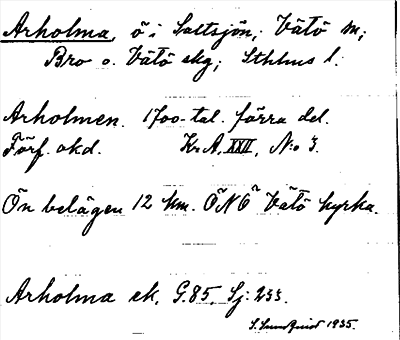 Arholma, ö i Saltsjön, Vätö sn;
Bro o. Vätö skg; Sthlms l.
Arholmen. 1700-tal. förra del.
Förf. okd. Kr.A. XXII, N:o 3.
Ön belägen 12 km. ÖNÖ Vätö kyrka.
Arholma ek. G.85. Sj: 233.
S. Lundquist 1935.